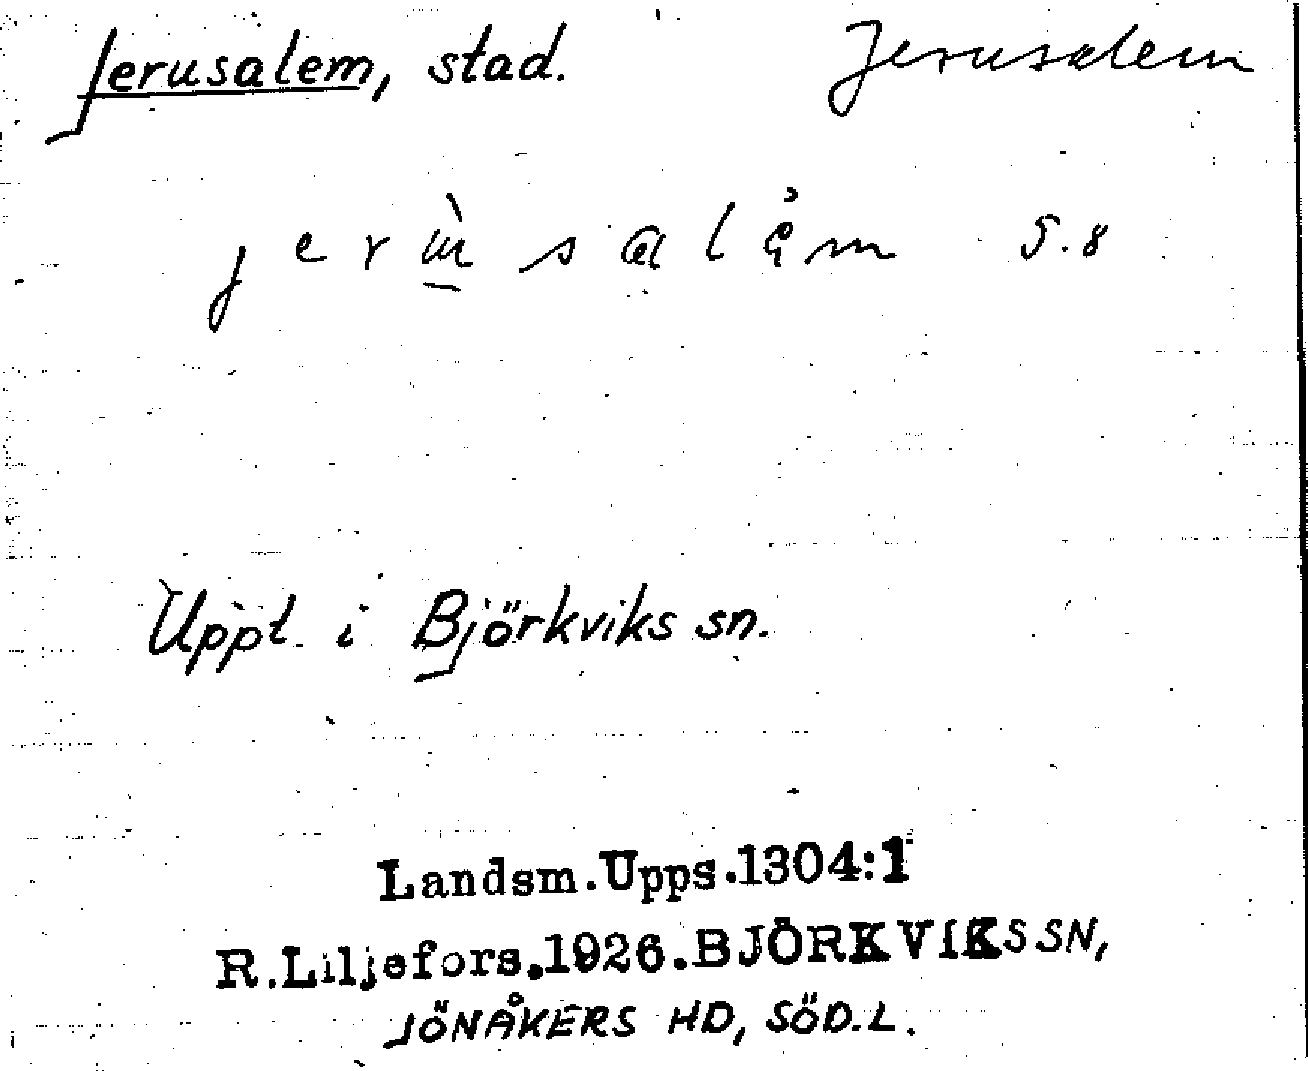 Jerusalem, stad. Jerusalem
S. 8
Uppt. i Björkviks sn.
Landsm.Upps.1304:1
R.Liljefors.1926.BJÖRKVIKS SN,
JÖNÅKERS HD, SÖD.L.